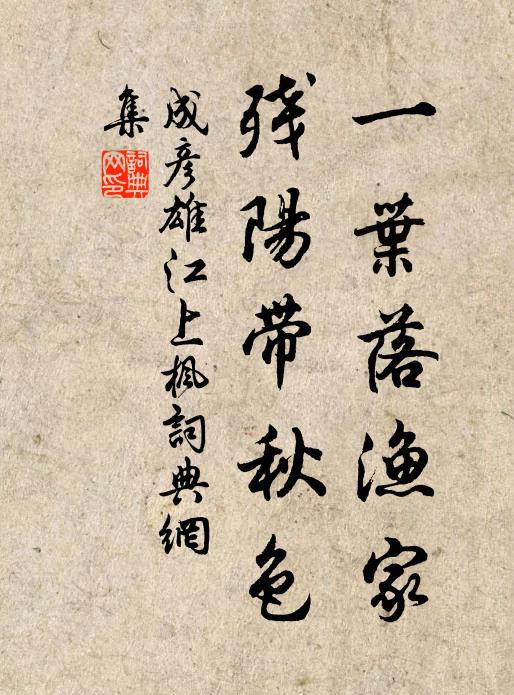 一葉落漁家
殘陽帶秋色
成彥雄江上楓詞典網
集
詞典
网印